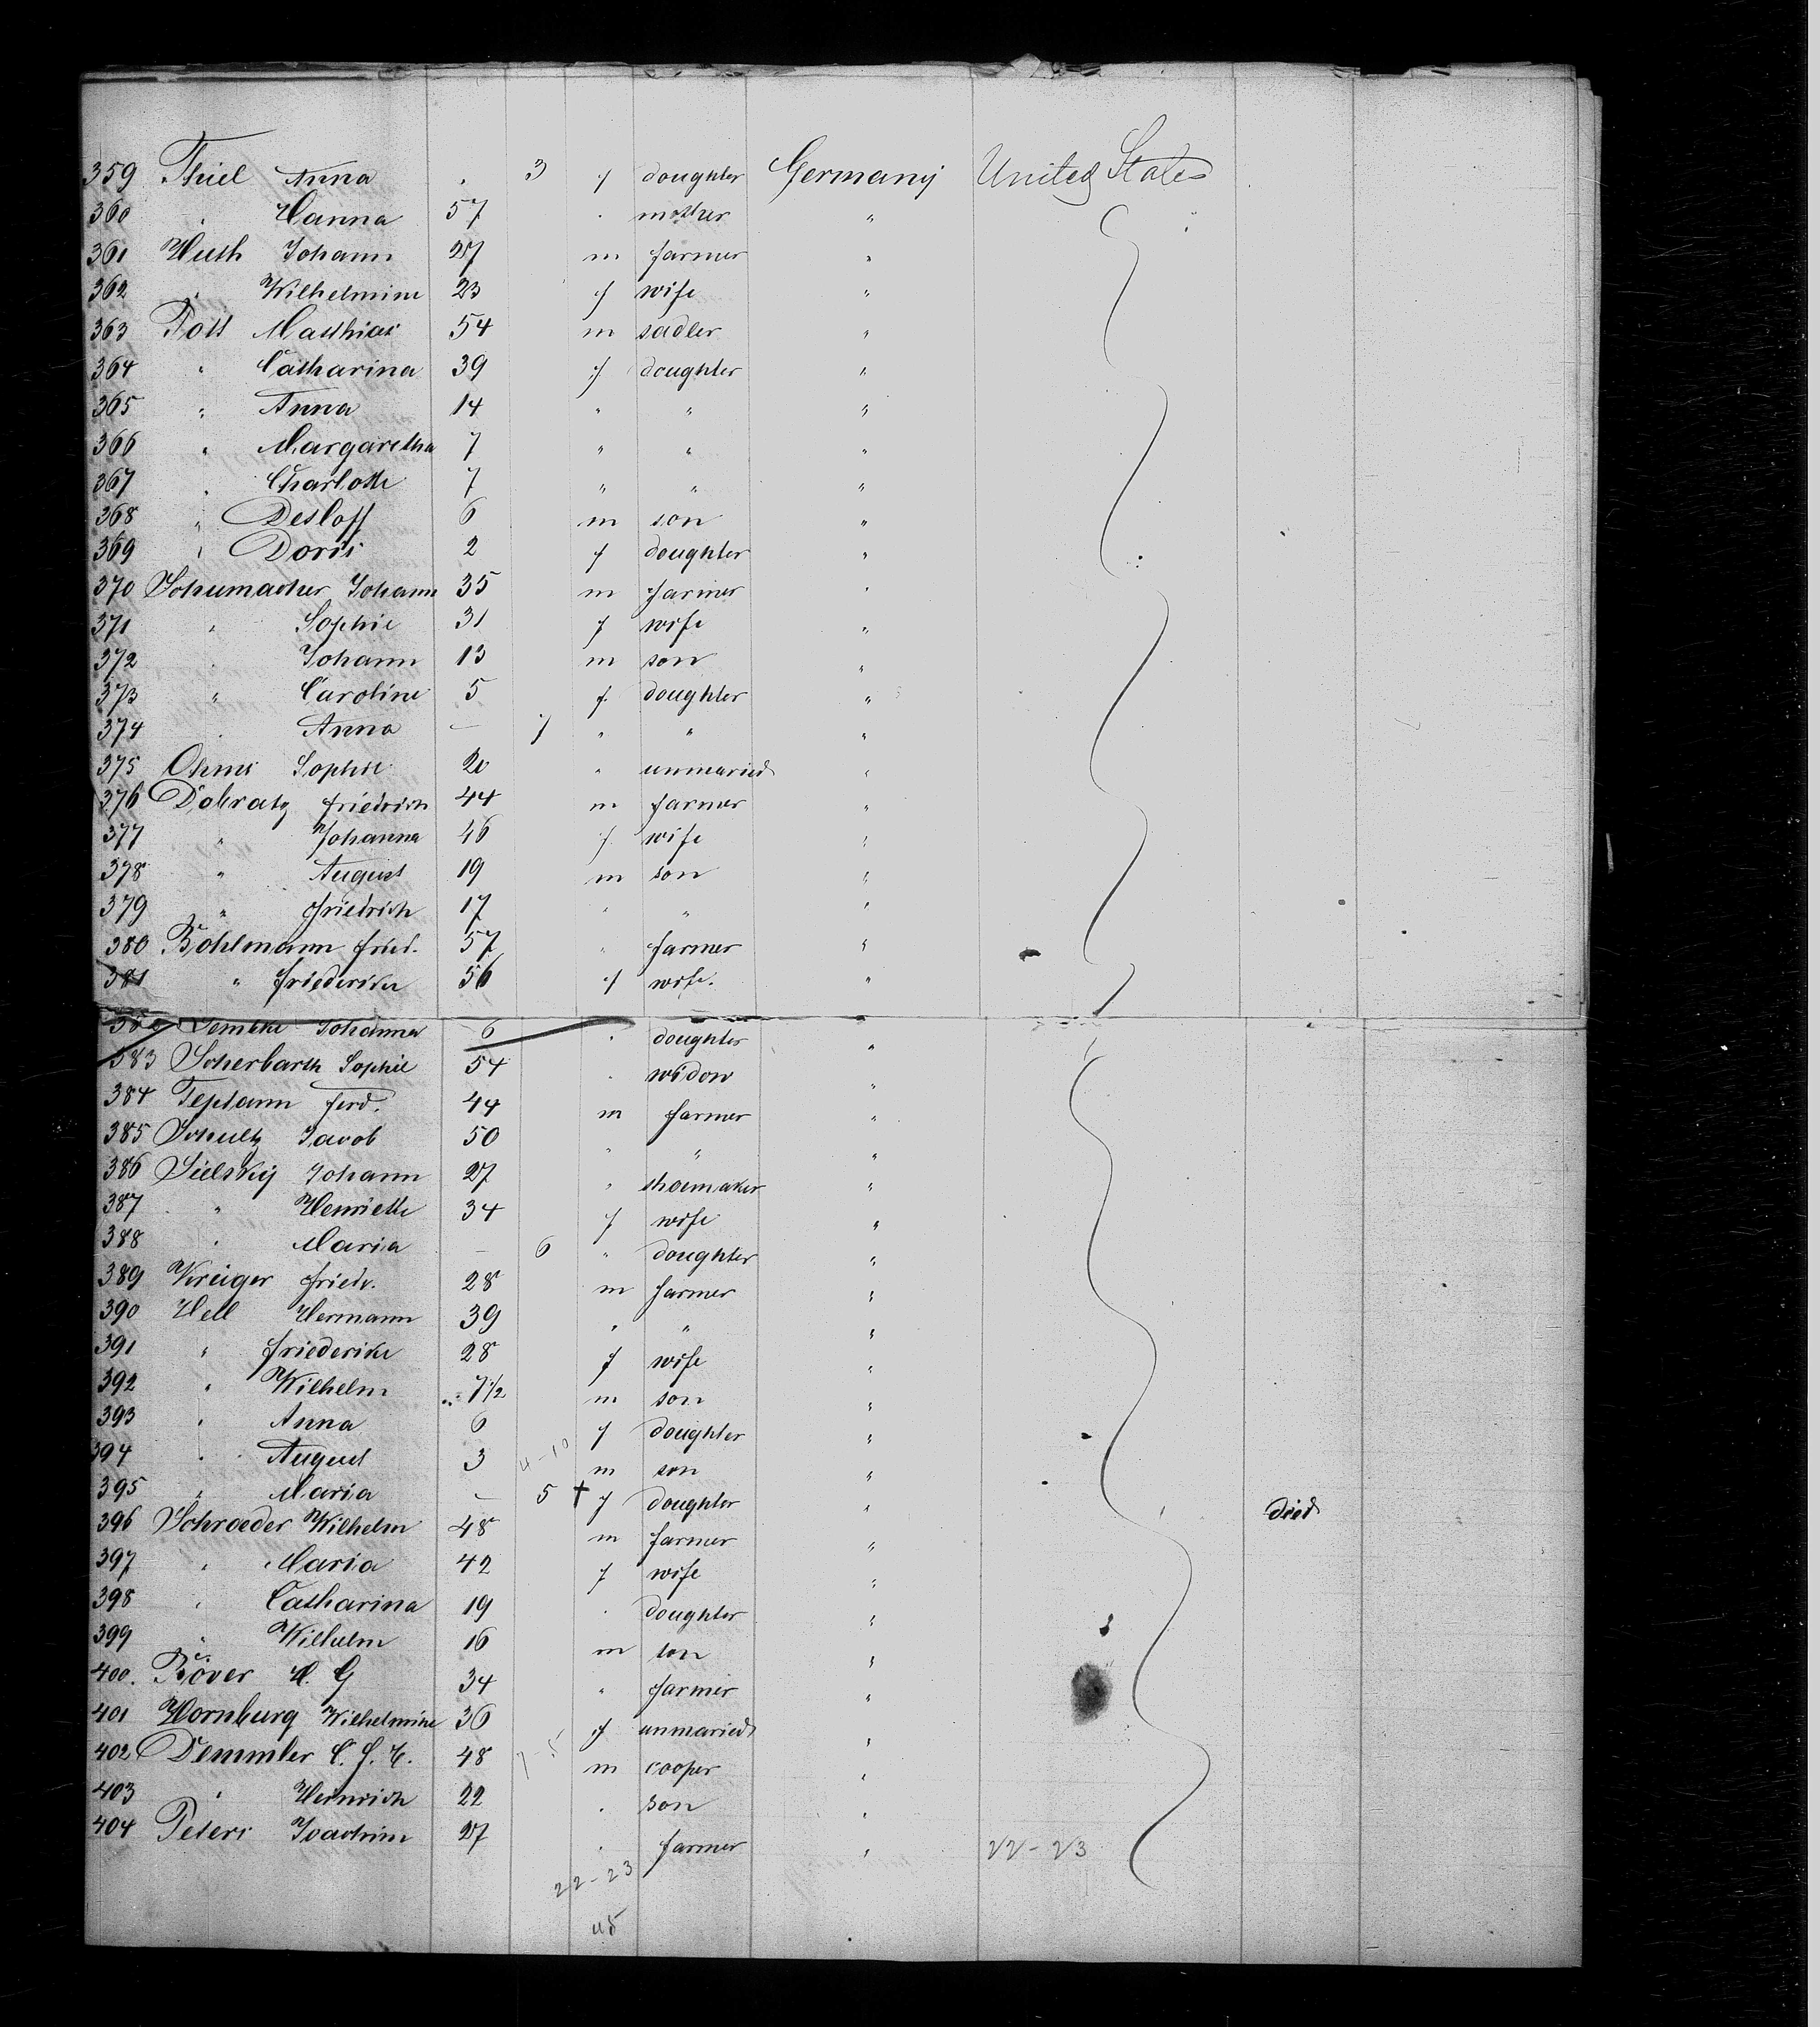 359 Thiel Anna " 3 f doughter Germany United States
360 " Hanna 57 " mother "
361 Huth Johann 27 m farmer "
362 " Wilhelmine 23 f wife "
363 Tott Matthias 54 m sadler "
364 " Catharina 39 f doughter "
365 " Anna 14 " " "
366 " Margaretha 7 " " "
367 " Charlotte 7 " " "
368 " Detloff 6 m son "
369 " Doris 2 f doughter "
370 Schumacher Johann 35 m farmer "
371 " Sophie 31 f wife "
372 " Johann 13 m son "
373 " Caroline 5 f doughter "
374 " Anna — 7 " " "
375 Ohms Sophie 20 " unmaried "
376 Dobratz Friedrich 44 m farmer "
377 " Johanna 46 f wife "
378 " August 19 m son "
379 " Friedrich 17 " " "
380 Bohlmann Fried. 57 " farmer "
381 " Friederike 56 f wife. "
382 Johanna 6 " doughter "
383 Scherbarth Sophie 54 " widow "
384 Ferd. 44 m farmer "
385 Schultz Jacob 50 " " "
386 Sielsky Johann 27 " shoemaker "
387 " Henriette 34 f wife "
388 " Maria — 6 " doughter "
389 Krüger Friedr. 28 m farmer "
390 Hell Hermann 39 " " "
391 " Friederike 28 f wife "
392 " Wilhelm 7 1/2 m son "
393 " Anna 6 f doughter "
394 " August 3 4-10 m son "
395 " Maria — 5 † f doughter " died
396 Schroeder Wilhelm 48 m farmer "
397 " Maria 42 f wife "
398 " Catharina 19 " doughter "
399 " Wilhelm 16 m son "
400. Böver H. G 34 " farmer "
401 Hornburg Wilhelmine 36 f unmaried "
402 Demmler C. J. 48 7-5 m cooper "
403 " Heinrich 22 " son "
404 Peters Joachim 27 " farmer " 22-23
22-23
45